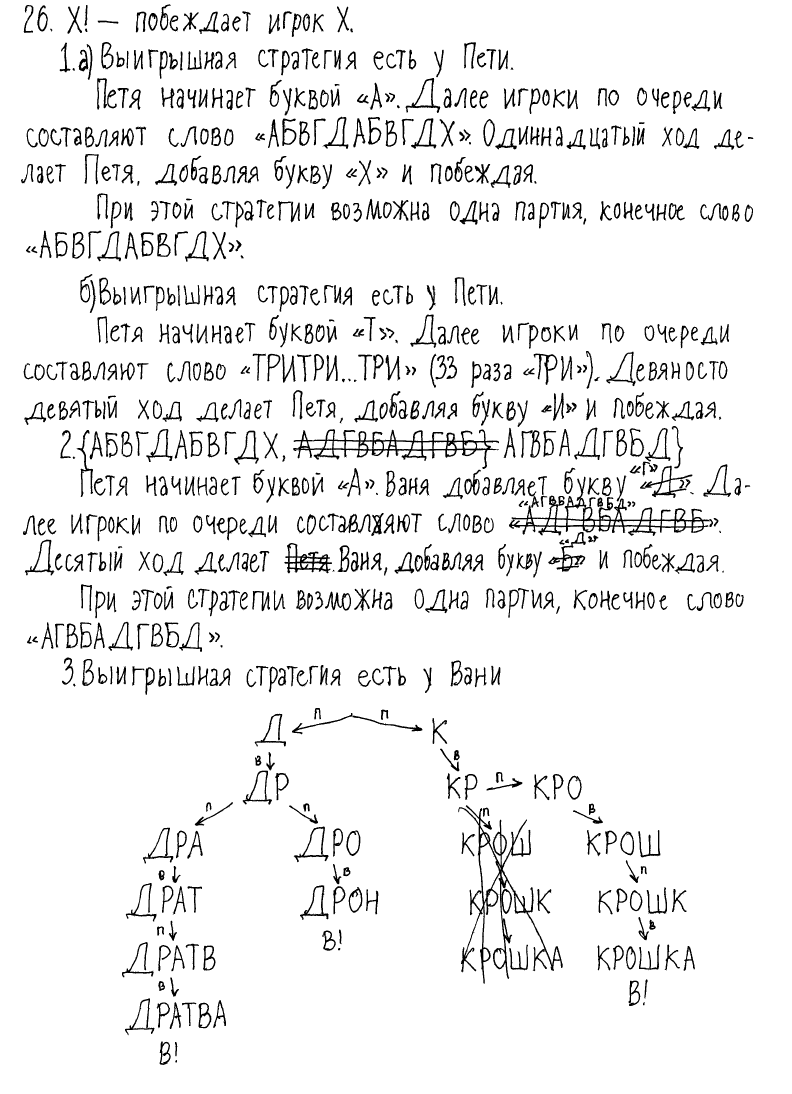 26. X! — побеждает игрок X.
1.а) Выигрышная стратегия есть у Пети.
Петя начинает буквой «А». Далее игроки по очереди
составляют слово «АБВГДАБВГДХ». Одиннадцатый ход де-
лает Петя, добавляя букву «Х» и побеждая.
При этой стратегии возможна одна партия, конечное слово
«АБВГДАБВГДХ».
б) Выигрышная стратегия есть у Пети.
Петя начинает буквой «Т». Далее игроки по очереди
составляют слово «ТРИТРИ...ТРИ» (33 раза «ТРИ»). Девяносто
девятый ход делает Петя, добавляя букву «И» и побеждая.
2. {АБВГДАБВГДХ, АДГВБАДГВБ} АГВБАДГВБД}
«Г»
Петя начинает буквой «А». Ваня добавляет букву «Д». Да-
«АГВБАДГВБД»
лее игроки по очереди составляют слово «АДГВБАДГВБ».
«Д»
Десятый ход делает Петя Ваня, добавляя букву «Б» и побеждая.
При этой стратегии возможна одна партия, конечное слово
«АГВБАДГВБД».
3. Выигрышная стратегия есть у Вани
П П
Д К
В В
ДР КР П КРО
П П П В
ДРА ДРО КРОШ КРОШ
В В П
ДРАТ ДРОН КРОШК КРОШК
П В! В
ДРАТВ КРОШКА КРОШКА
В В!
ДРАТВА
В!